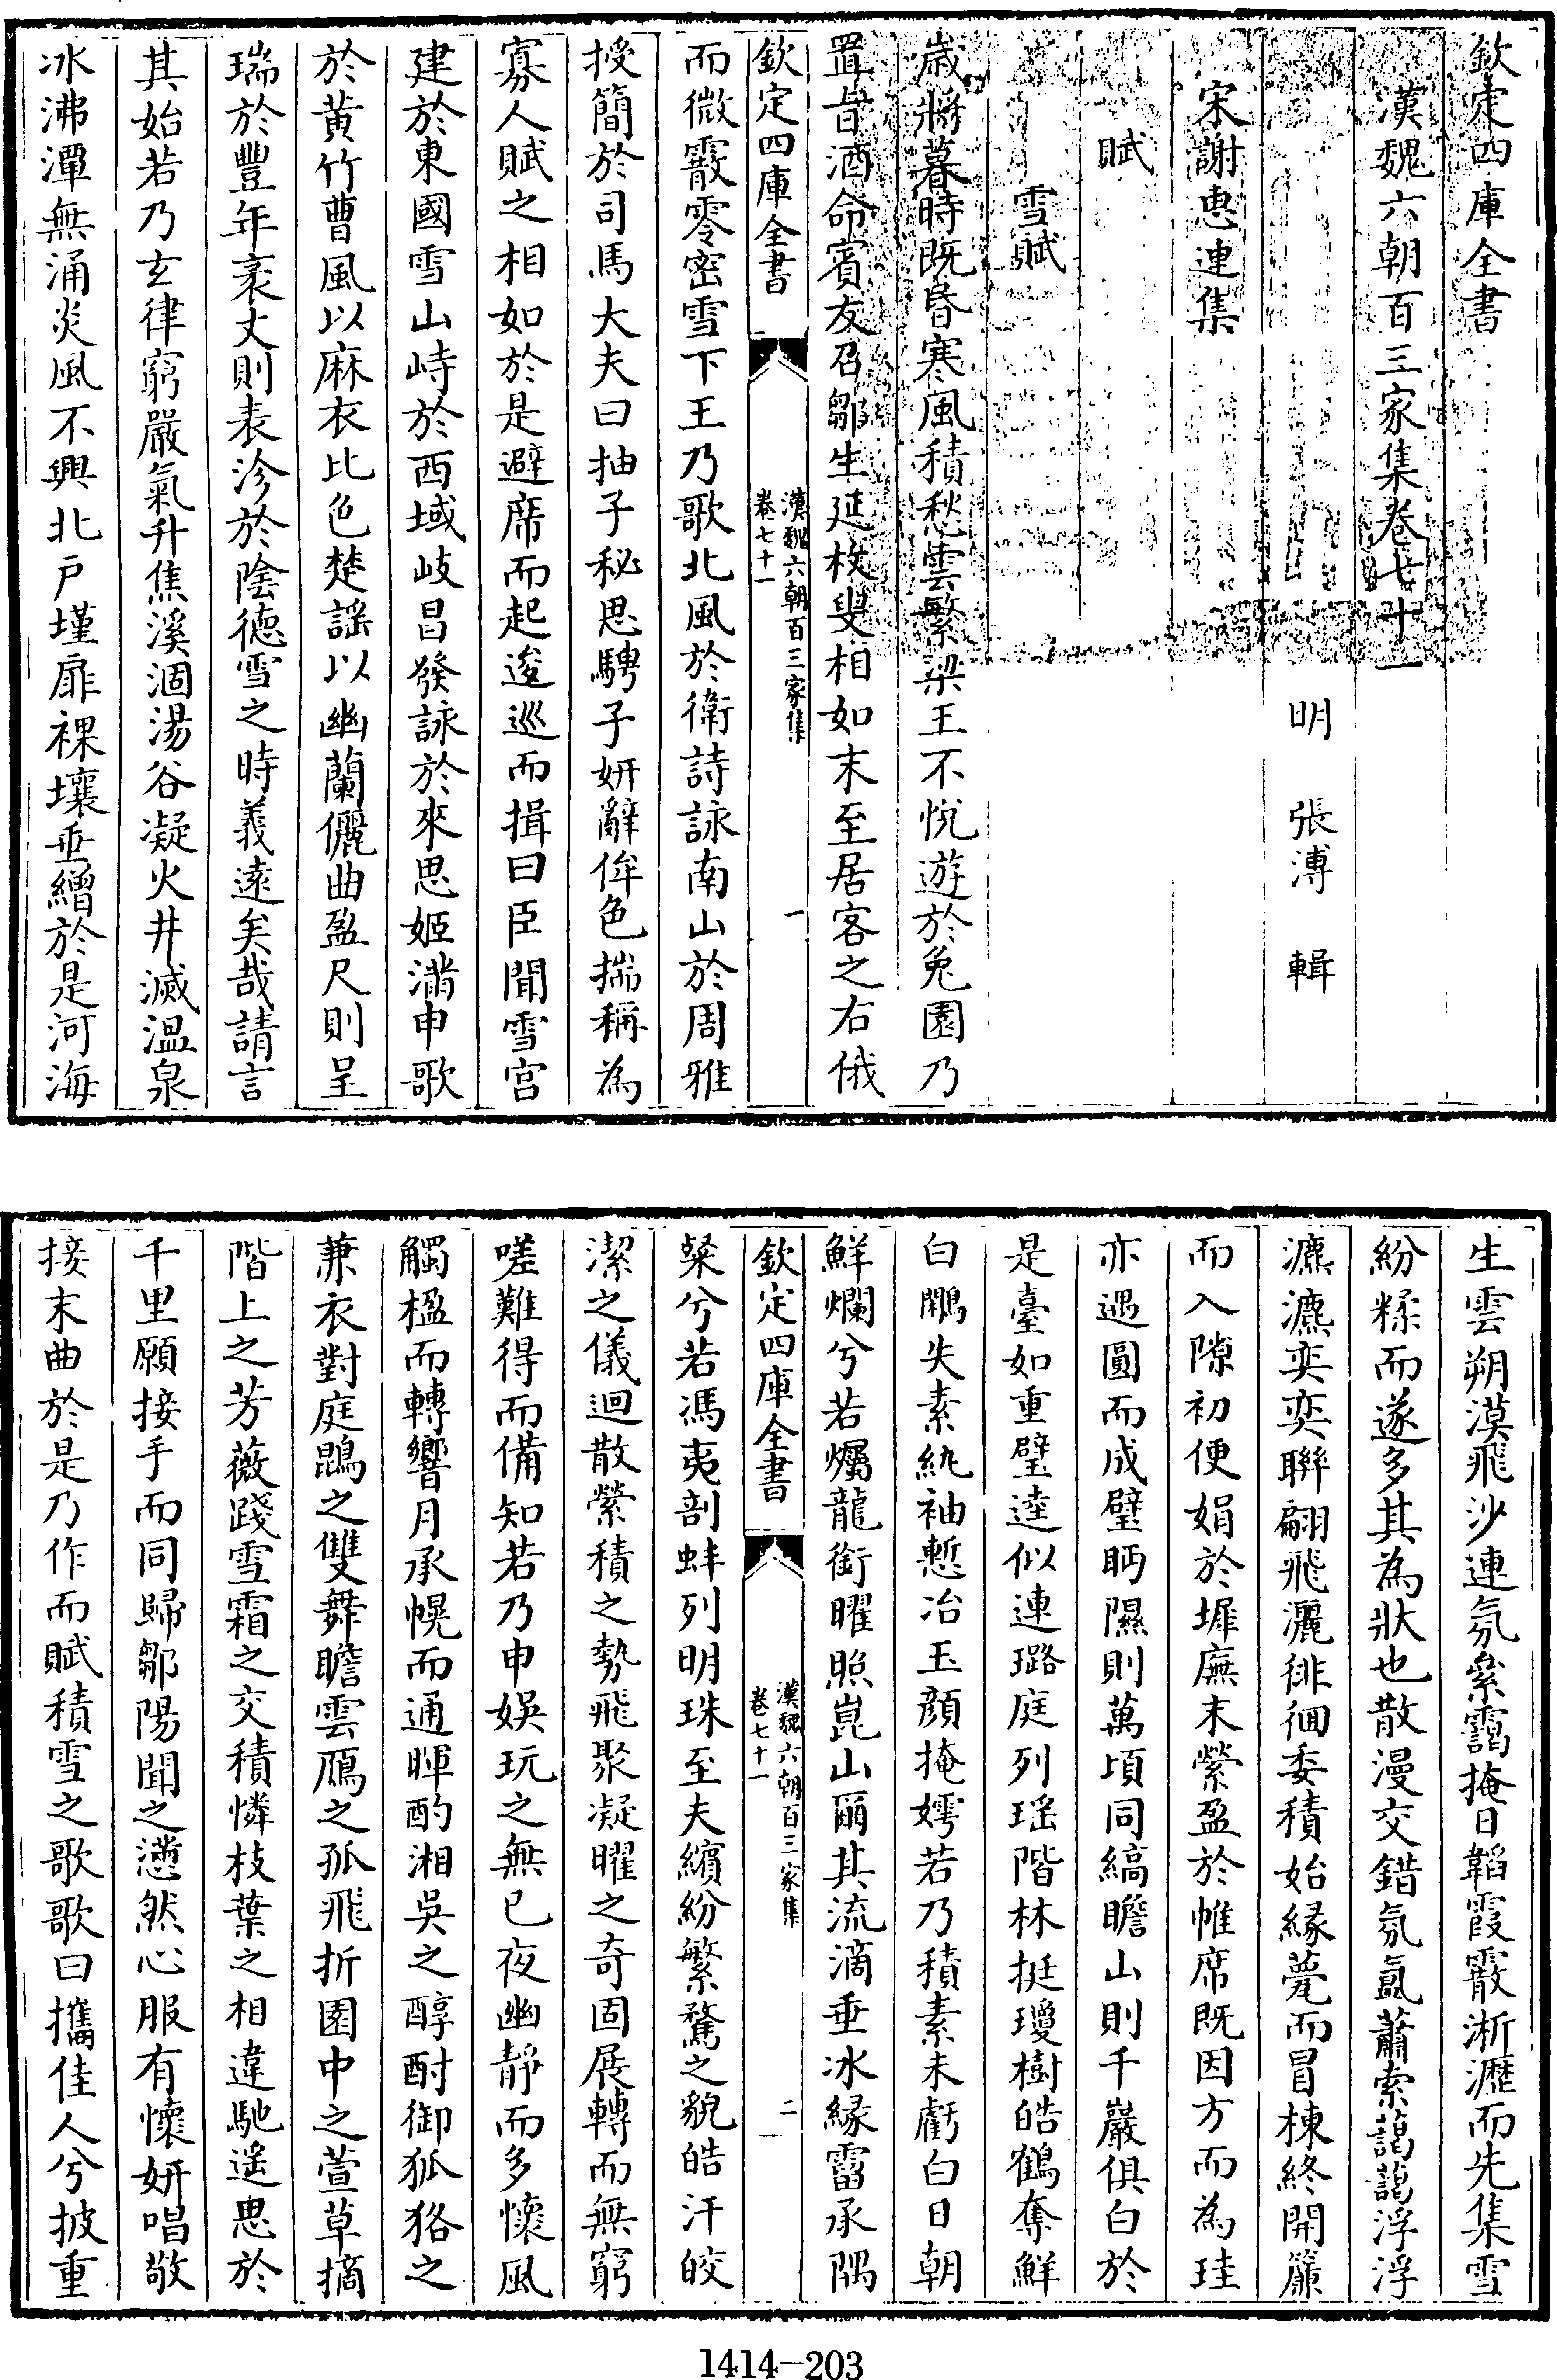 欽定四庫全書
漢魏六朝百三家集卷七十一
明 張溥 輯
宋謝惠連集
賦
雪賦
歲將暮時既昏寒風積愁雲繁梁王不悅遊於兔園乃
置旨酒命賓友召鄒生延枚叟相如末至居客之右俄
欽定四庫全書
漢魏六朝百三家集
卷七十一
一
而微霰零密雪下王乃歌北風於衛詩詠南山於周雅
授簡於司馬大夫曰抽子秘思騁子妍辭侔色揣稱為
寡人賦之相如於是避席而起逡巡而揖曰臣聞雪宫
建於東國雪山峙於西域岐昌發詠於來思姬滿申歌
於黃竹曹風以麻衣比色楚謡以幽蘭儷曲盈尺則呈
瑞於豐年袤丈則表沴於陰德雪之時義遠矣哉請言
其始若乃玄律窮嚴氣升焦溪涸湯谷凝火井滅溫泉
冰沸潭無涌炎風不興北戶墐扉裸壤垂繒於是河海
生雲朔漠飛沙連氛絫靄掩日韜霞霰淅瀝而先集雪
紛糅而遂多其為狀也散漫交錯氛氳蕭索藹藹浮浮
瀌瀌奕奕聯翩飛灑徘徊委積始緣甍而冒棟終開簾
而入隙初便娟於墀廡末縈盈於帷席既因方而為珪
亦遇圓而成璧眄隰則萬頃同縞瞻山則千巖俱白於
是臺如重璧逵似連璐庭列瑶階林挺瓊樹皓鶴奪鮮
白鷴失素紈袖慙冶玉顏掩嫮若乃積素未虧白日朝
鮮爛兮若燭龍銜曜照崑山爾其流滴垂冰緣霤承隅
欽定四庫全書
漢魏六朝百三家集
卷七十一
二
粲兮若馮夷剖蚌列明珠至夫繽紛繁騖之貌皓汗皎
潔之儀迴散縈積之勢飛聚凝曜之奇固展轉而無窮
嗟難得而備知若乃申娛玩之無已夜幽靜而多懷風
觸楹而轉響月承幌而通暉酌湘吳之醇酎御狐狢之
兼衣對庭鵾之雙舞瞻雲鴈之孤飛折園中之萱草摘
階上之芳薇踐雪霜之交積憐枝葉之相違馳遥思於
千里願接手而同歸鄒陽聞之懣然心服有懷妍唱敬
接末曲於是乃作而賦積雪之歌歌曰攜佳人兮披重
1414—203